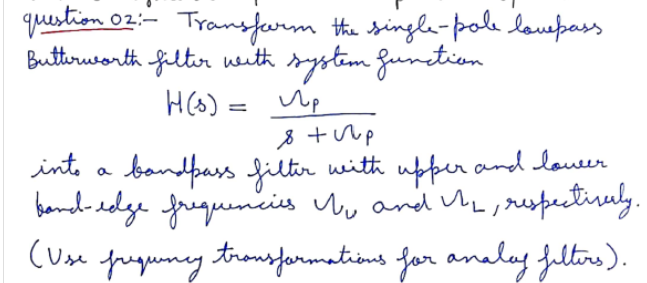 question 02:- Transform the single-pole lowpass
Butterworth filter with system function
H(s) = Ωp / (s + Ωp)
into a bandpass filter with upper and lower
band-edge frequencies Ωu and ΩL, respectively.
(Use frequency transformations for analog filters).